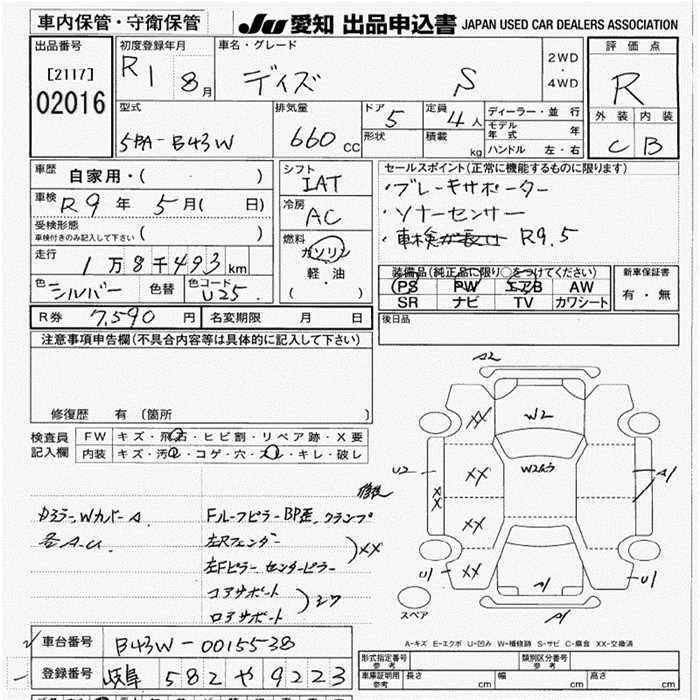 車内保管・守衛保管
JU 愛知 出品申込書 JAPAN USED CAR DEALERS ASSOCIATION
出品番号
[2117]
02016
初度登録年月
R1 8月
車名・グレード
デイズ S
2WD
・
4WD
評価点
R
外装 内装
C B
型式
5BA-B43W
排気量
660 CC
ドア
5
形状
定員
4人
積載
kg
ディーラー・並行
モデル年式 年
ハンドル 左・右
車歴
自家用・( )
車検
R9年 5月( 日)
受検形態
車検付きのみ記入して下さい ( )
走行
1万8千493km
色 シルバー 色替
色コード
U25
シフト
IAT
冷房
AC
燃料
ガソリン
軽・油
( )
セールスポイント(正常に機能するものに限ります)
・ブレーキサポーター
・ソナーセンサー
・車検が長せ R9.5
装備品(純正品に限り○をつけてください)
PS PW エアB AW
SR ナビ TV カワシート
新車保証書
有・無
R券 7,590円
名変期限 月 日
後日品
注意事項申告欄(不具合内容等は具体的に記入して下さい)
修復歴 有 〔箇所 〕
検査員
記入欄
FW キズ・飛石・ヒビ割・リペア跡・X要
内装 キズ・汚れ・コゲ・穴・スレ・キレ・破レ
修復
ドミラーWカバーA
各A.U
Fルーフピラー BP歪、クランプ
左Rフェンダー
左Fピラー センターピラー
XX
コアサポート
ロアサポート
A2
XX
W2
W2カラ
U2
XX
XX
XX
A1
XX
XX
U1
A1
U1
A1
スペア
A-キズ E-エクボ U-凹み W-補修跡 S-サビ C-腐食 XX-交換済
車台番号 B43W-0015538
登録番号 岐阜 582 や 9223
形式指定番号
参考
類別区分番号
参考
車庫証明用
参考
長さ cm
幅 cm
高さ cm